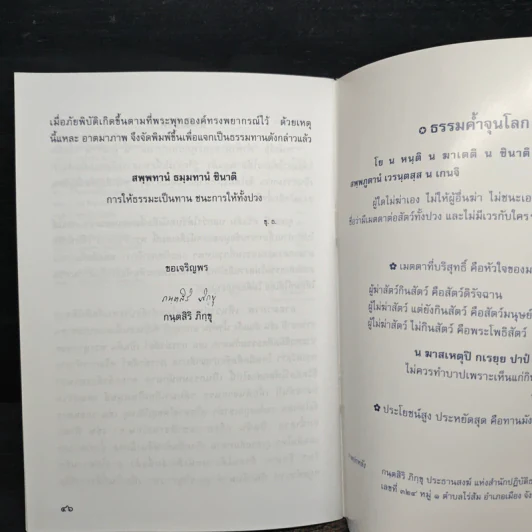 เมื่อภัยพิบัติเกิดขึ้นตามที่พระพุทธองค์ทรงพยากรณ์ไว้ ด้วยเหตุ
นี้แหละ อาตมาภาพ จึงจัดพิมพ์ขึ้นเพื่อแจกเป็นธรรมทานดังกล่าวแล้ว
สพฺพทานํ ธมฺมทานํ ชินาติ
การให้ธรรมะเป็นทาน ชนะการให้ทั้งปวง
ขุ. ธ.
ขอเจริญพร
กนฺตสิริ ภิกฺขุ
กนฺตสิริ ภิกฺขุ
๔๖
๐ ธรรมค้ำจุนโลก
โย น หนฺติ น ฆาเตติ น ชินาติ
สพฺพภูตานํ เวรนฺตสฺส น เกนจิ
ผู้ใดไม่ฆ่าเอง ไม่ให้ผู้อื่นฆ่า ไม่ชนะเอง
ชื่อว่ามีเมตตาต่อสัตว์ทั้งปวง และไม่มีเวรกับใคร
✿ เมตตาที่บริสุทธิ์ คือหัวใจของ
ผู้ฆ่าสัตว์กินสัตว์ คือสัตว์ดิรัจฉาน
ผู้ไม่ฆ่าสัตว์ แต่ยังกินสัตว์ คือสัตว์มนุษย์
ผู้ไม่ฆ่าสัตว์ ไม่กินสัตว์ คือพระโพธิสัตว์
น ฆาสเหตุปิ กเรยฺย ปาปํ
ไม่ควรทำบาปเพราะเห็นแก่กิน
✿ ประโยชน์สูง ประหยัดสุด คือทานมัง
กนฺตสิริ ภิกฺขุ ประธานสงฆ์ แห่งสำนักปฏิบัติ
เลขที่ ๓๒๔ หมู่ ๑ ตำบลไร่ส้ม อำเภอเมือง จัง